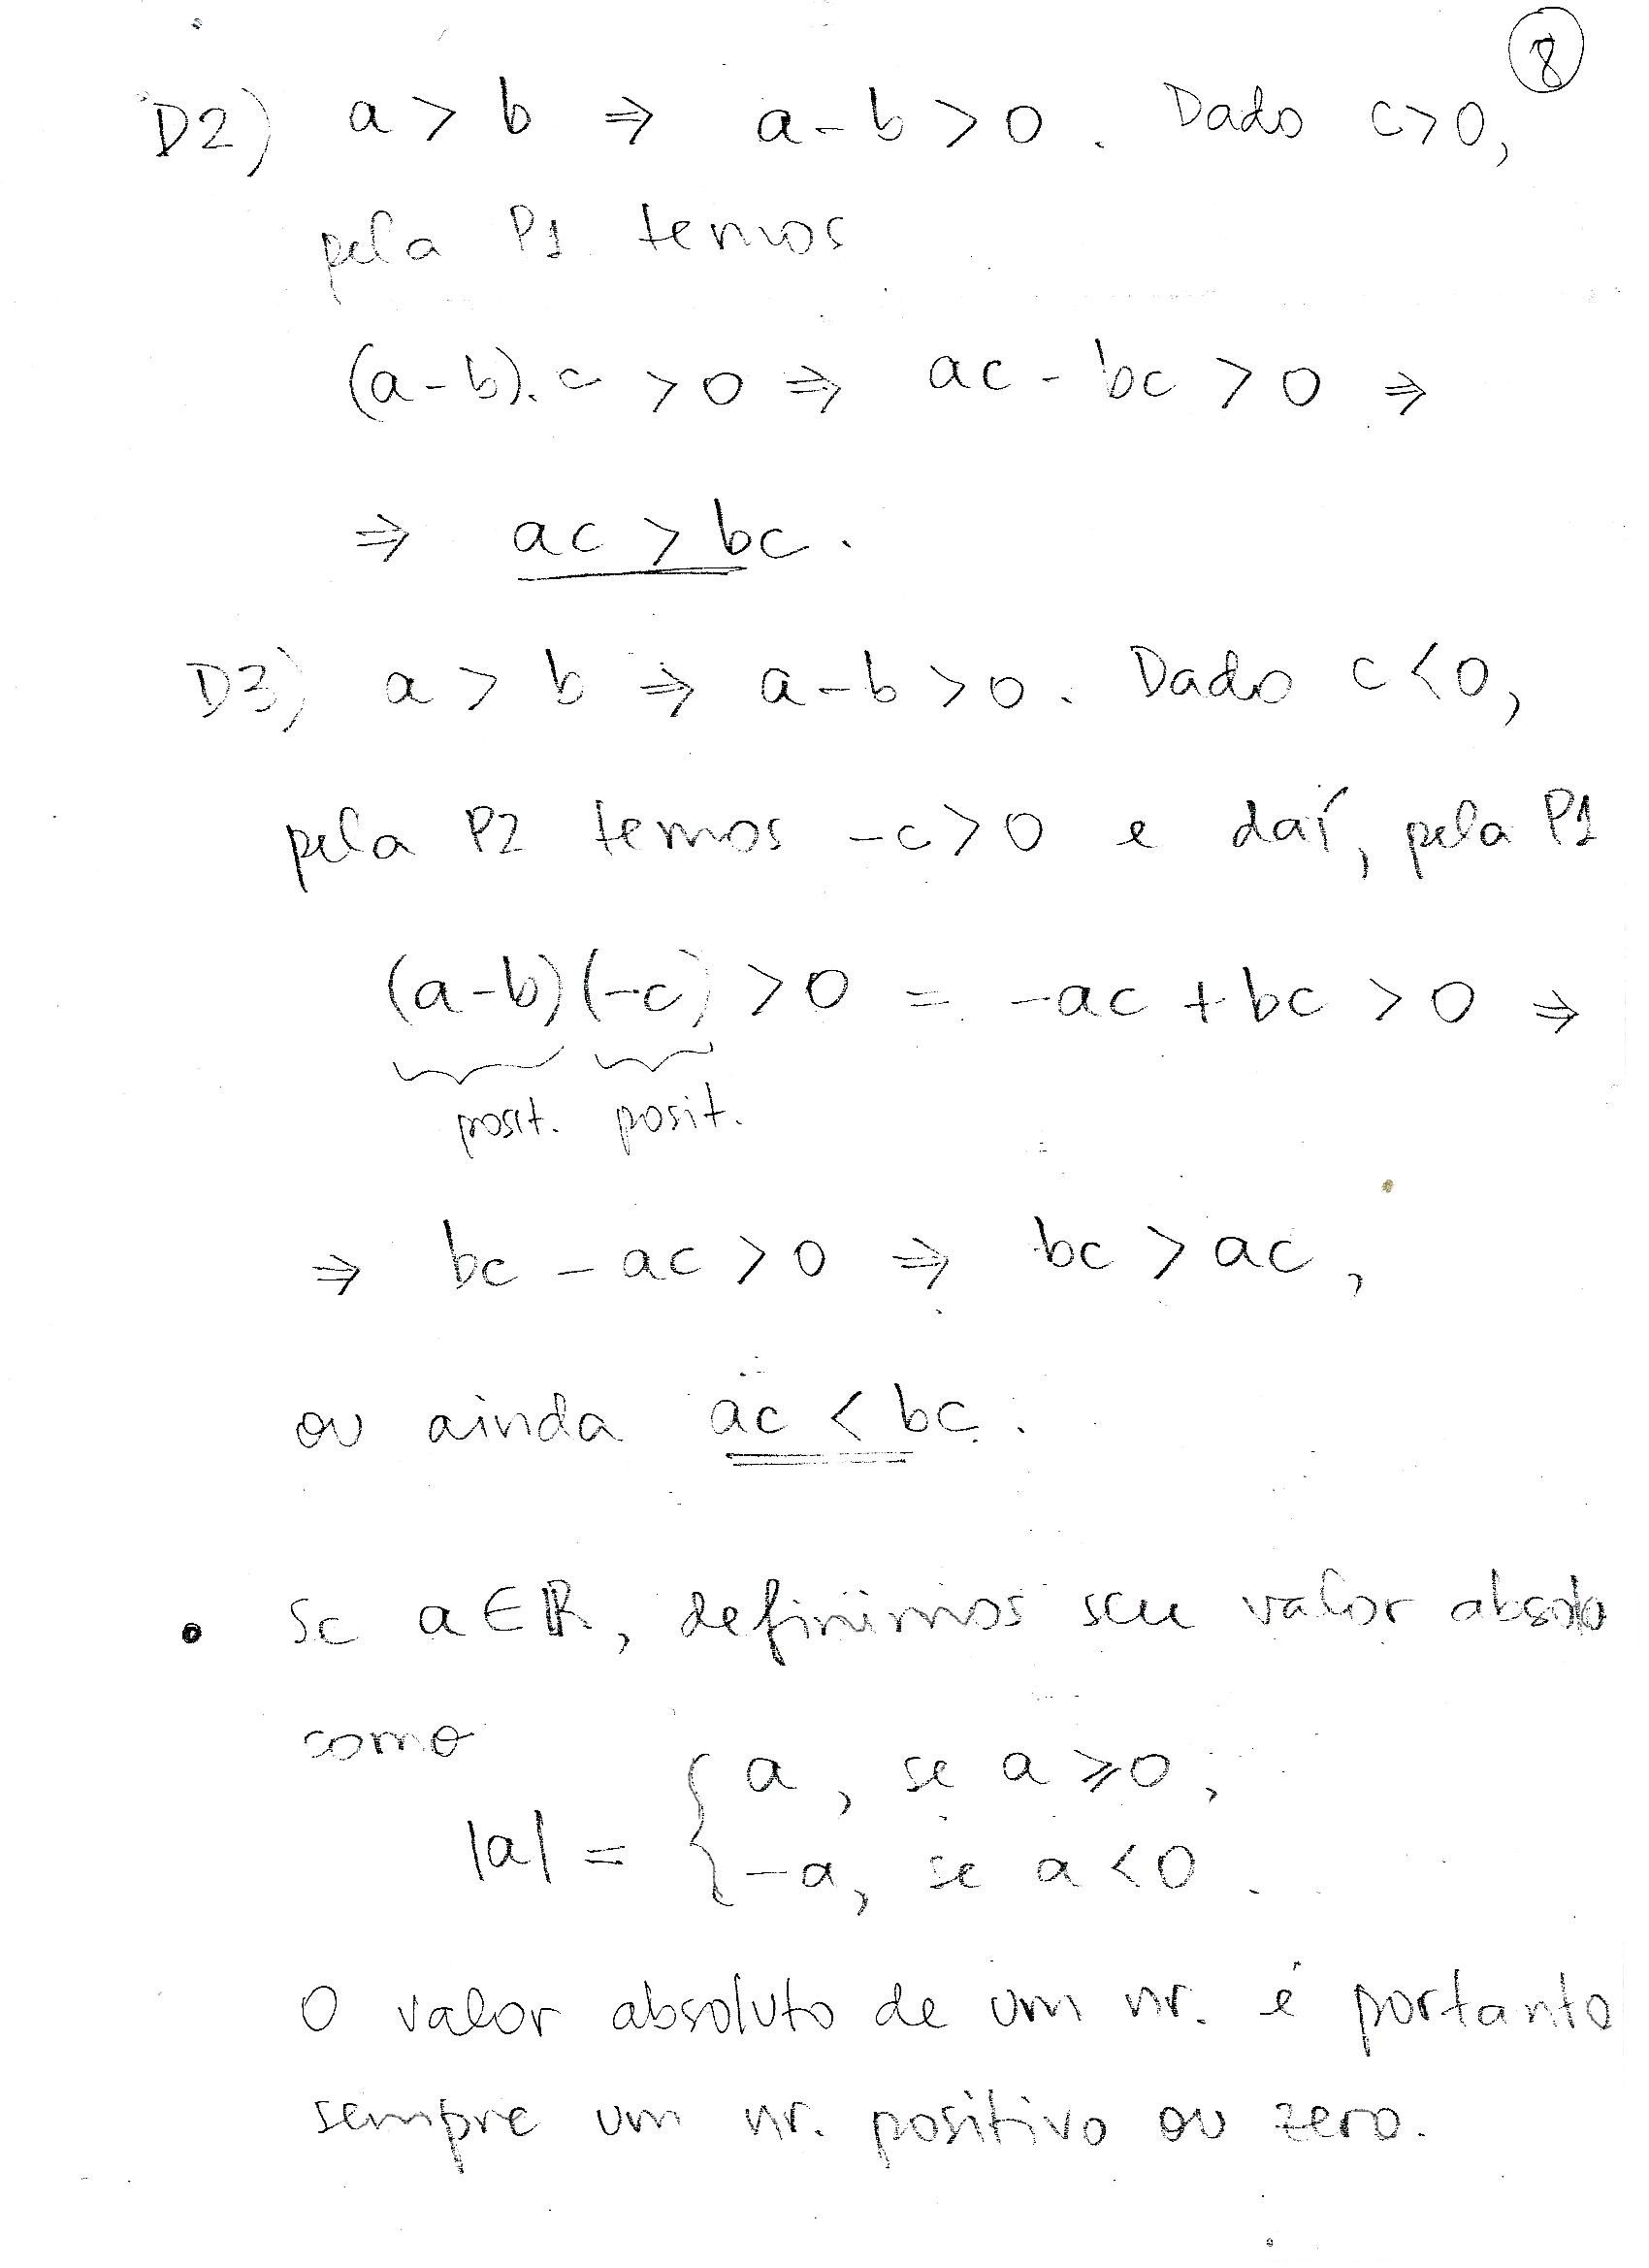 8
D2) a > b ⇒ a - b > 0. Dado c > 0,
pela P1 temos
(a - b).c > 0 ⇒ ac - bc > 0 ⇒
⇒ ac > bc.
D3) a > b ⇒ a - b > 0. Dado c < 0,
pela P2 temos -c > 0 e daí, pela P1
(a - b)(-c) > 0 = -ac + bc > 0 ⇒
posit. posit.
⇒ bc - ac > 0 ⇒ bc > ac,
ou ainda ac < bc.
• Se a ∈ ℝ, definimos seu valor absoluto
como
a, se a ⩾ 0,
|a| = {
-a, se a < 0.
O valor absoluto de um nr. é portanto
sempre um nr. positivo ou zero.